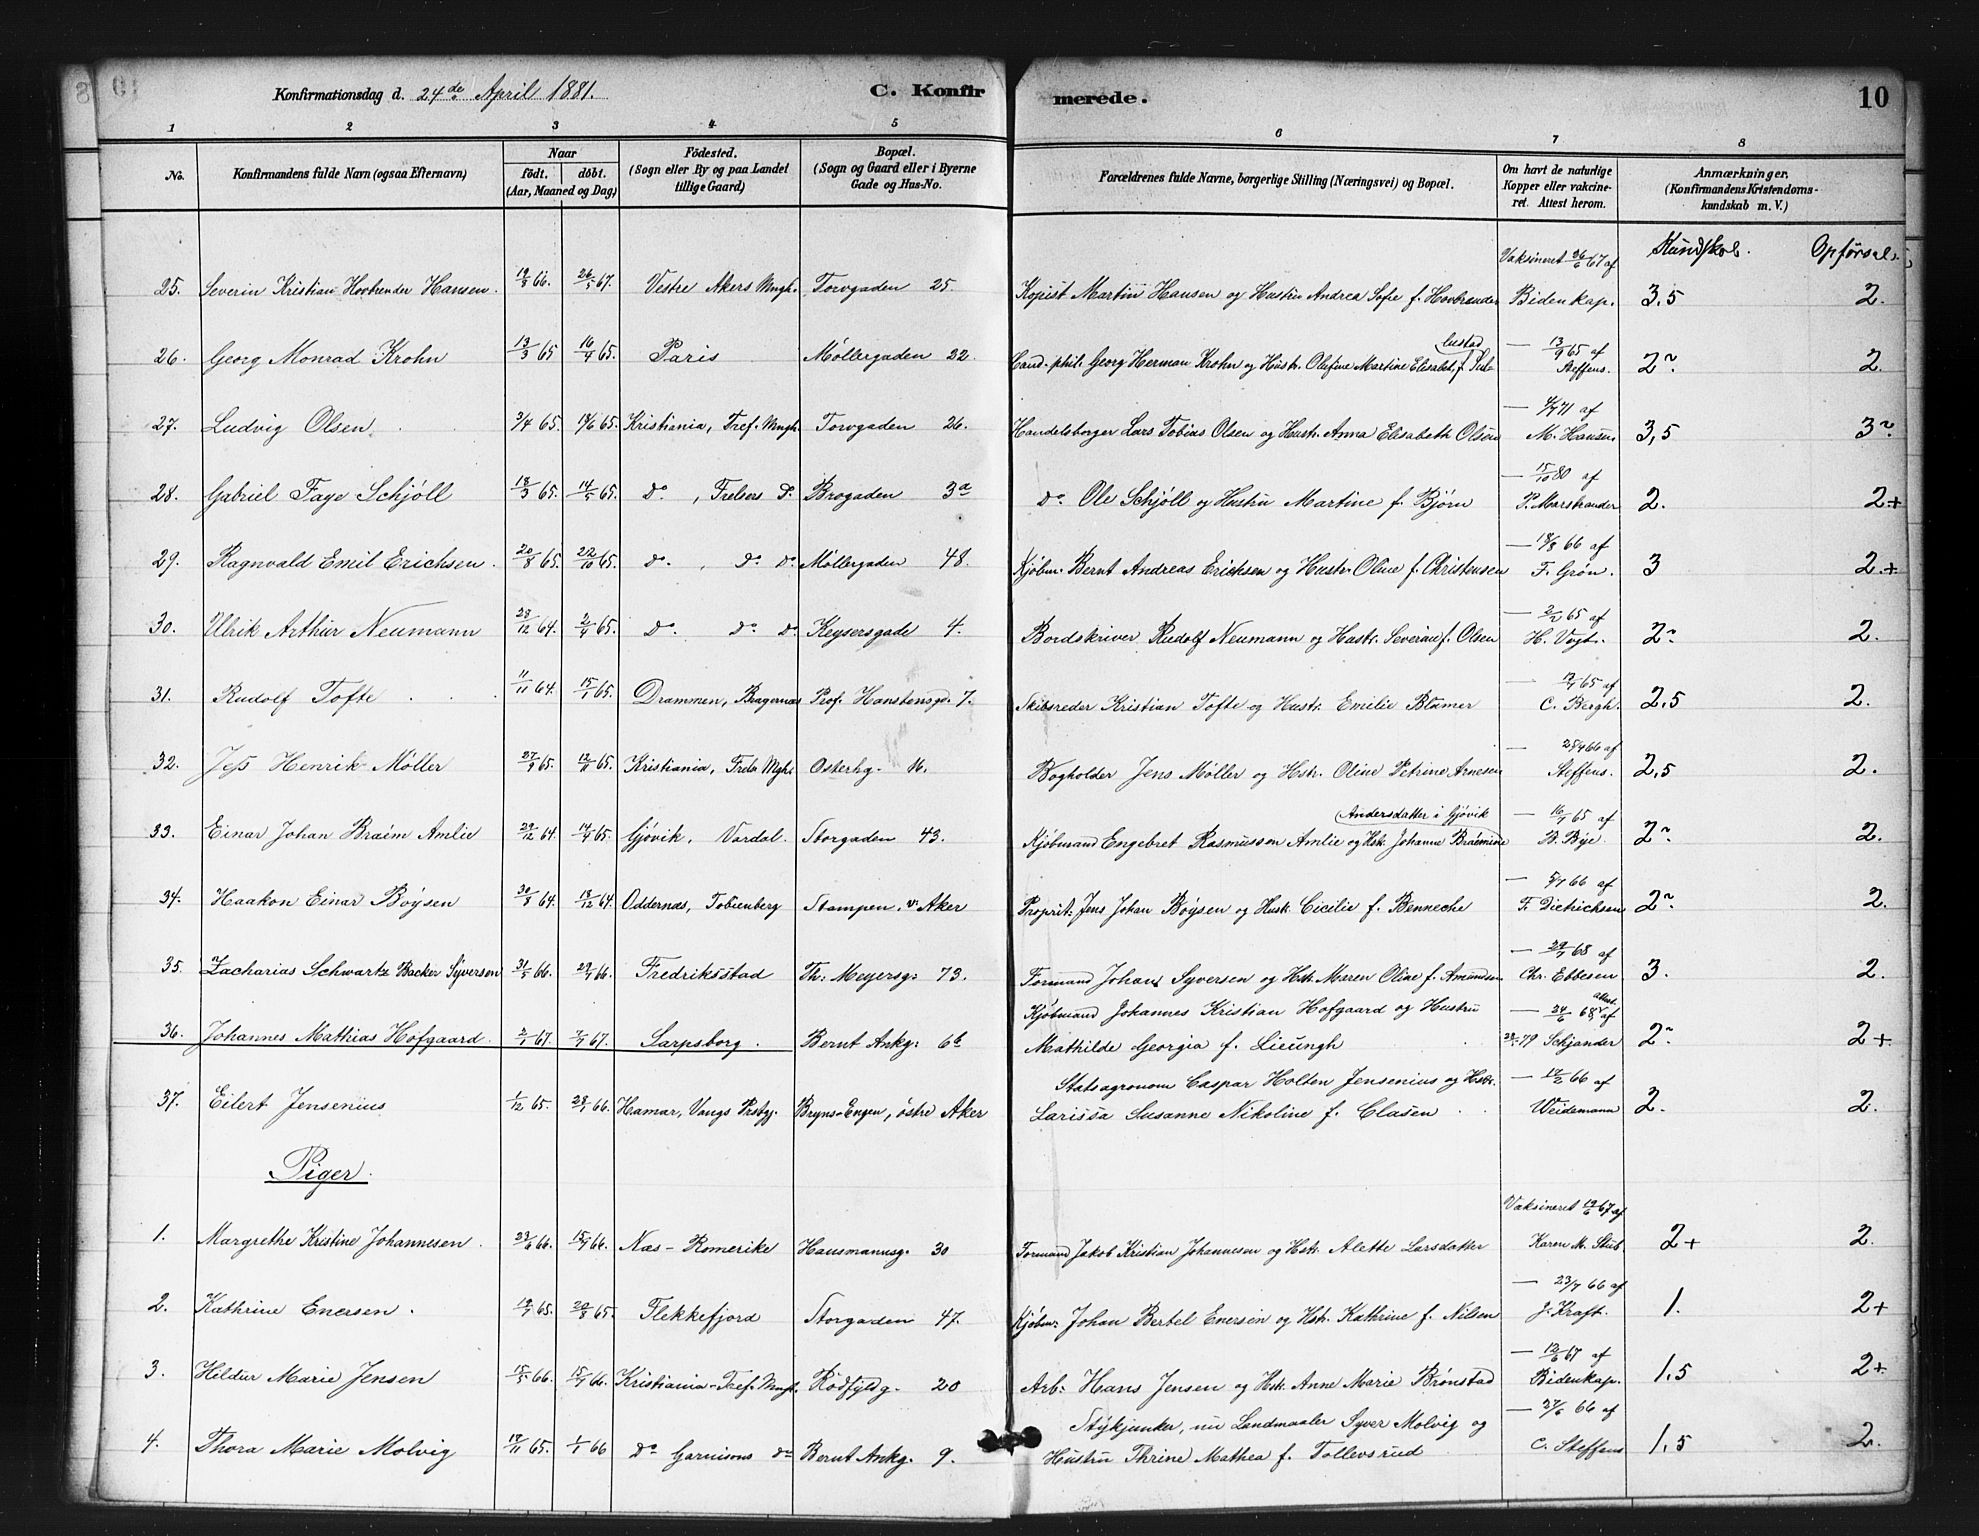 Konfirmationsdag d. 24de April 1881. C. Konfirmerede. 10
1 2 3 4 5 6 7 8
No. Konfirmandens fulde Navn (ogsaa Efternavn) Naar født. døbt. (Aar, Maaned og Dag) Fødested. (Sogn eller By og paa Landet tillige Gaard) Bopæl. (Sogn og Gaard eller i Byerne Gade og Hus-No. Forældrenes fulde Navne, borgerlige Stilling (Næringsvei) og Bopæl. Om havt de naturlige Kopper eller vakcineret. Attest herom. Anmærkninger. (Konfirmandens Kristendomskundskab m. V.)
Kundskab. Opførsel.
25. Severin Kristian Hovbrender Hansen. 26/5 67. Vestre Akers Mngh. Torvgaden 25. Kopist Martin Hansen og Hustru Andrea Sofie f. Hovbrænder Vaksineret 26/6 67 af Bidenkap. 3,5 2.
26. Georg Monrad Krohn 13/3 65 16/4 65. Paris Møllergaden 22. Cand. phil. Georg Herman Krohn og Hustr. Olufine Martine Elisabet f. — 13/9 65 af Steffens. 2~ 2.
27. Ludvig Olsen 3/4 65. 65. Kristiania, Tref. Mngh. Torvgaden 26. Handelsborger Lars Tobias Olsen og Hustr. Anna Elisabeth Olsen — 71 af M. Hansen 3,5 3~
28. Gabriel Faye Schjöll 18/3 65. 14/5 65. do , Frelsers do Brogaden 3a do Ole Schjöll og Hustru Martine f. Bjørn — 15/10 80 af P. Marstrander 2. 2+
29. Ragnvald Emil Erichsen. 20/8 65. 22/10 65. do , do do Møllergaden 48. Kjøbm. Bernt Andreas Erichsen og Hustr. Oline f. Christensen — 18/8 66 af F. Grøn. 3 2.+
30. Ulrik Arthur Neumann 28/12 64. 2/4 65. do do do Keysersgade 4. Bordskriver Rudolf Neumann og Hustr. Severine f. Olsen — 2/2 65 af H. Vogt. 2~ 2.
31. Rudolf Tofte 11/11 64. 15/1 65. Drammen, Bragernæs Prof. Hanstensgd. 7. Skibsreder Kristian Tofte og Hustr. Emilie Blümer — 65 af C. Bergh. 2,5 2.
32. Jess Henrik Møller 27/9 65. 12/11 65. Kristiania, Frels Mgh. Osterhg. 16. Bogholder Jens Møller og Hstr. Oline Petrine Arnesen — 66 af Steffens. 2,5 2.
33. Einar Johan Braëm Amlie 29/12 64. 14/4 65. Gjövik, Vardal. Storgaden 43. Kjøbmand Engebret Rasmussen Amlie og Hst. Johanne Braëmine Andersdatter i Gjövik — 16/7 65 af B. Bye. 2~ 2.
34. Haakon Einar Böysen 30/8 64. 18/12 64. Oddernæs, Tobienberg Stampen. v. Aker Proprit. Jens Johan Böysen og Hustr. Cicilie f. Benneche — 66 af F. Dietrichsen 2~ 2.
35. Zacharias Schwartz Backer Syversen 31/5 66. 29/7 66. Fredriksstad Th: Meyersg: 73. Formand Johan Syversen og Hstr. Maren Oline f. Amundsen — 29/7 68 af Chr. Ebbesen 3. 2.
36. Johannes Mathias Hofgaard. 2/1 67. 67. Sarpsborg. Bernt Ankg: 6b Kjøbmand Johannes Kristian Hofgaard og Hustru Mathilde Georgia f. Lieungh — 24/6 68, attest. af 79 Schjander 2~ 2+
37. Eilert Jensenius 1/12 65. 28/1 66. Hamar, Vangs Prstgj. Bryns-Engen, østre Aker Statsagronom Caspar Holten Jensenius og Hstr. Larissa Susanne Nikoline f. Clasen — 12/2 66 af Weidemann 2. 2.
Piger.
1. Margrethe Kristine Johannesen 23/6 66. 15/7 66. Næs - Romerike Hausmannsg. 30 Formand Jakob Kristian Johannesen og Hstr. Alette Larsdatter Vaksineret 19/6 67 af Karen M. Stub 2+ 2.
2. Kathrine Enersen. 19/7 65. 20/8 65. Flekkefjord Storgaden 47. Kjøbm: Johan Bertel Enersen og Hstr. Kathrine f. Nilsen — 23/7 66 af J. Kraft. 1. 2+
3. Hildur Marie Jensen 15/5 66. 15/7 66. Kristiania - Tref. Mngh. Rödfyldg. 20 Arb: Hans Jensen og Hstr. Anne Marie Brönstad — 12/6 67 af Bidenkap. 1,5 2+
4. Thora Marie Molvig 19/11 65. 1/1 66 do Garnisons do Bernt Ankg. 9. Stykjunker, nu Landmaaler Syver Molvig og Hustru Thrine Mathea f. Tollevsrud — 27/6 66 af C. Steffens 1,5 2.